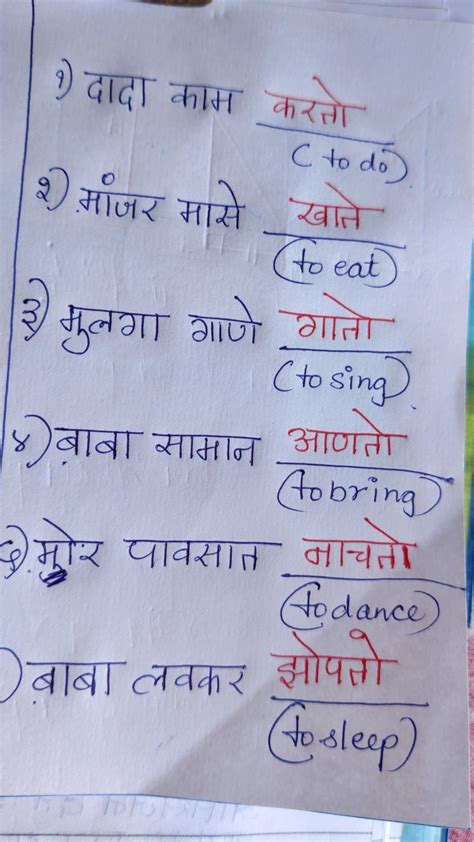 १) दादा काम करतो
(to do)
२) मांजर मासे खाते
(to eat)
३) मुलगा गाणे गातो
(to sing)
४) बाबा सामान आणतो
(to bring)
५) मोर पावसात नाचतो
(to dance)
) बाबा लवकर झोपतो
(to sleep)